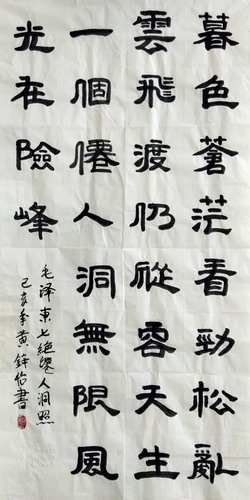 暮色蒼茫看勁松亂
雲飛渡仍從容天生
一個僊人洞無限風
光在險峰
毛泽東七絕僊人洞照
己亥年黄書